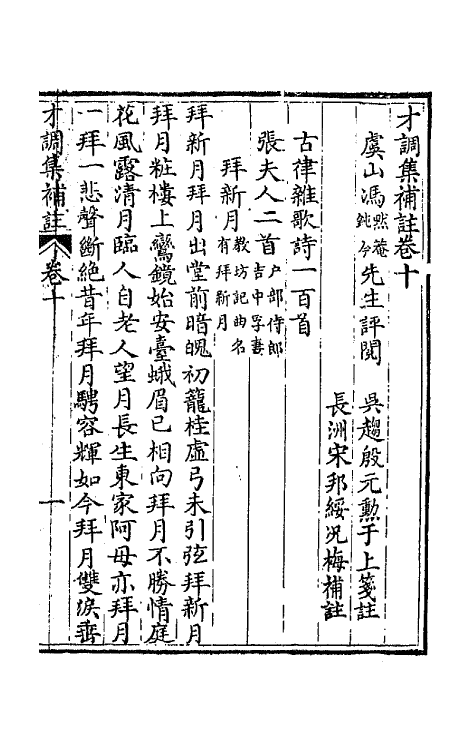 才調集補註卷十
虞山馮默菴鈍吟先生評閱 吳趨殷元勳于上箋註
長洲宋邦綏况梅補註
古律雜歌詩一百首
張夫人二首戶部侍郎吉中孚妻
拜新月教坊記曲名有拜新月
拜新月拜月出堂前暗魄初籠桂虛弓未引弦拜新月
拜月粧樓上鸞鏡始安臺蛾眉已相向拜月不勝情庭
花風露清月臨人自老人望月長生東家阿母亦拜月
一拜一悲聲斷絕昔年拜月騁容輝如今拜月雙淚垂
才調集補註 卷十 一